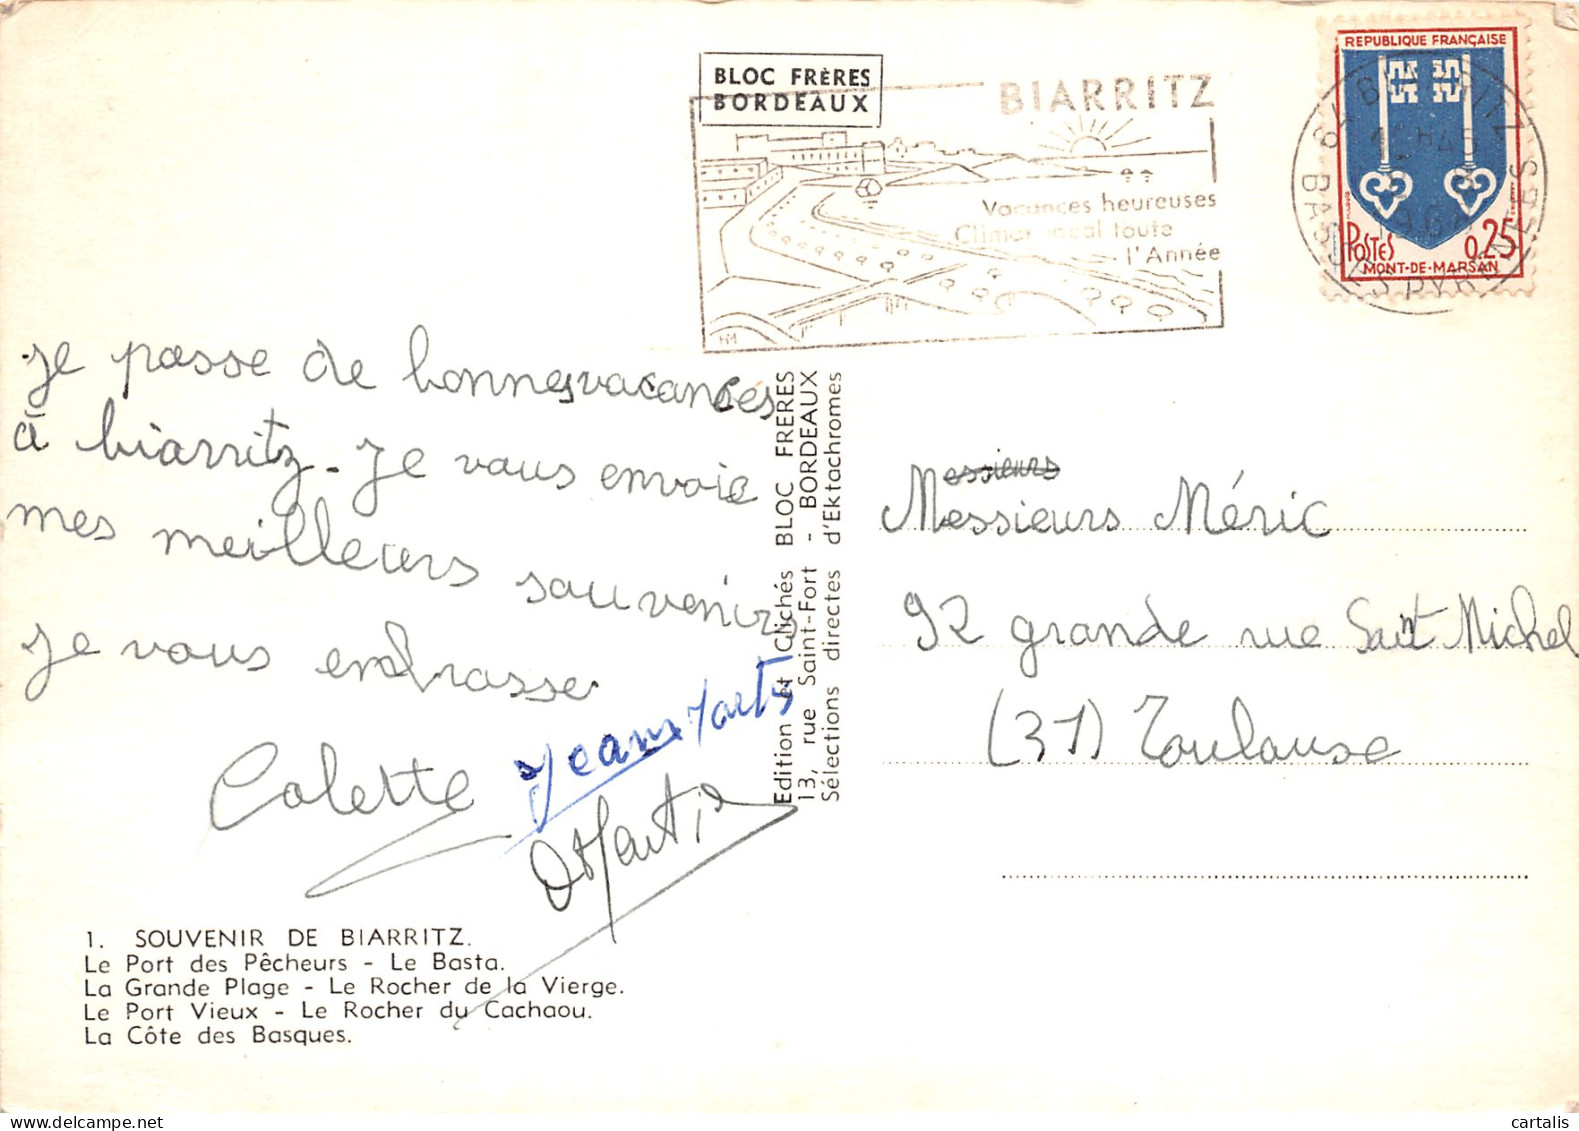 BLOC FRÈRES
BORDEAUX
BIARRITZ
Vacances heureuses
Climat idéal toute
l'Année
HM
REPUBLIQUE FRANÇAISE
POSTES 0,25
MONT-DE-MARSAN
BIARRITZ
BASSES PYRENEES
je passe de bonnes vacances
à biarritz - je vous envoie
mes meilleurs souvenirs
je vous embrasse
Colette
Edition et Clichés BLOC FRERES
13, rue Saint-Fort - BORDEAUX
Sélections directes d'Ektachromes
Messieurs Méric
92 grande rue Saint Michel
(31) Toulouse
1. SOUVENIR DE BIARRITZ.
Le Port des Pêcheurs - Le Basta.
La Grande Plage - Le Rocher de la Vierge.
Le Port Vieux - Le Rocher du Cachaou.
La Côte des Basques.
cartalis